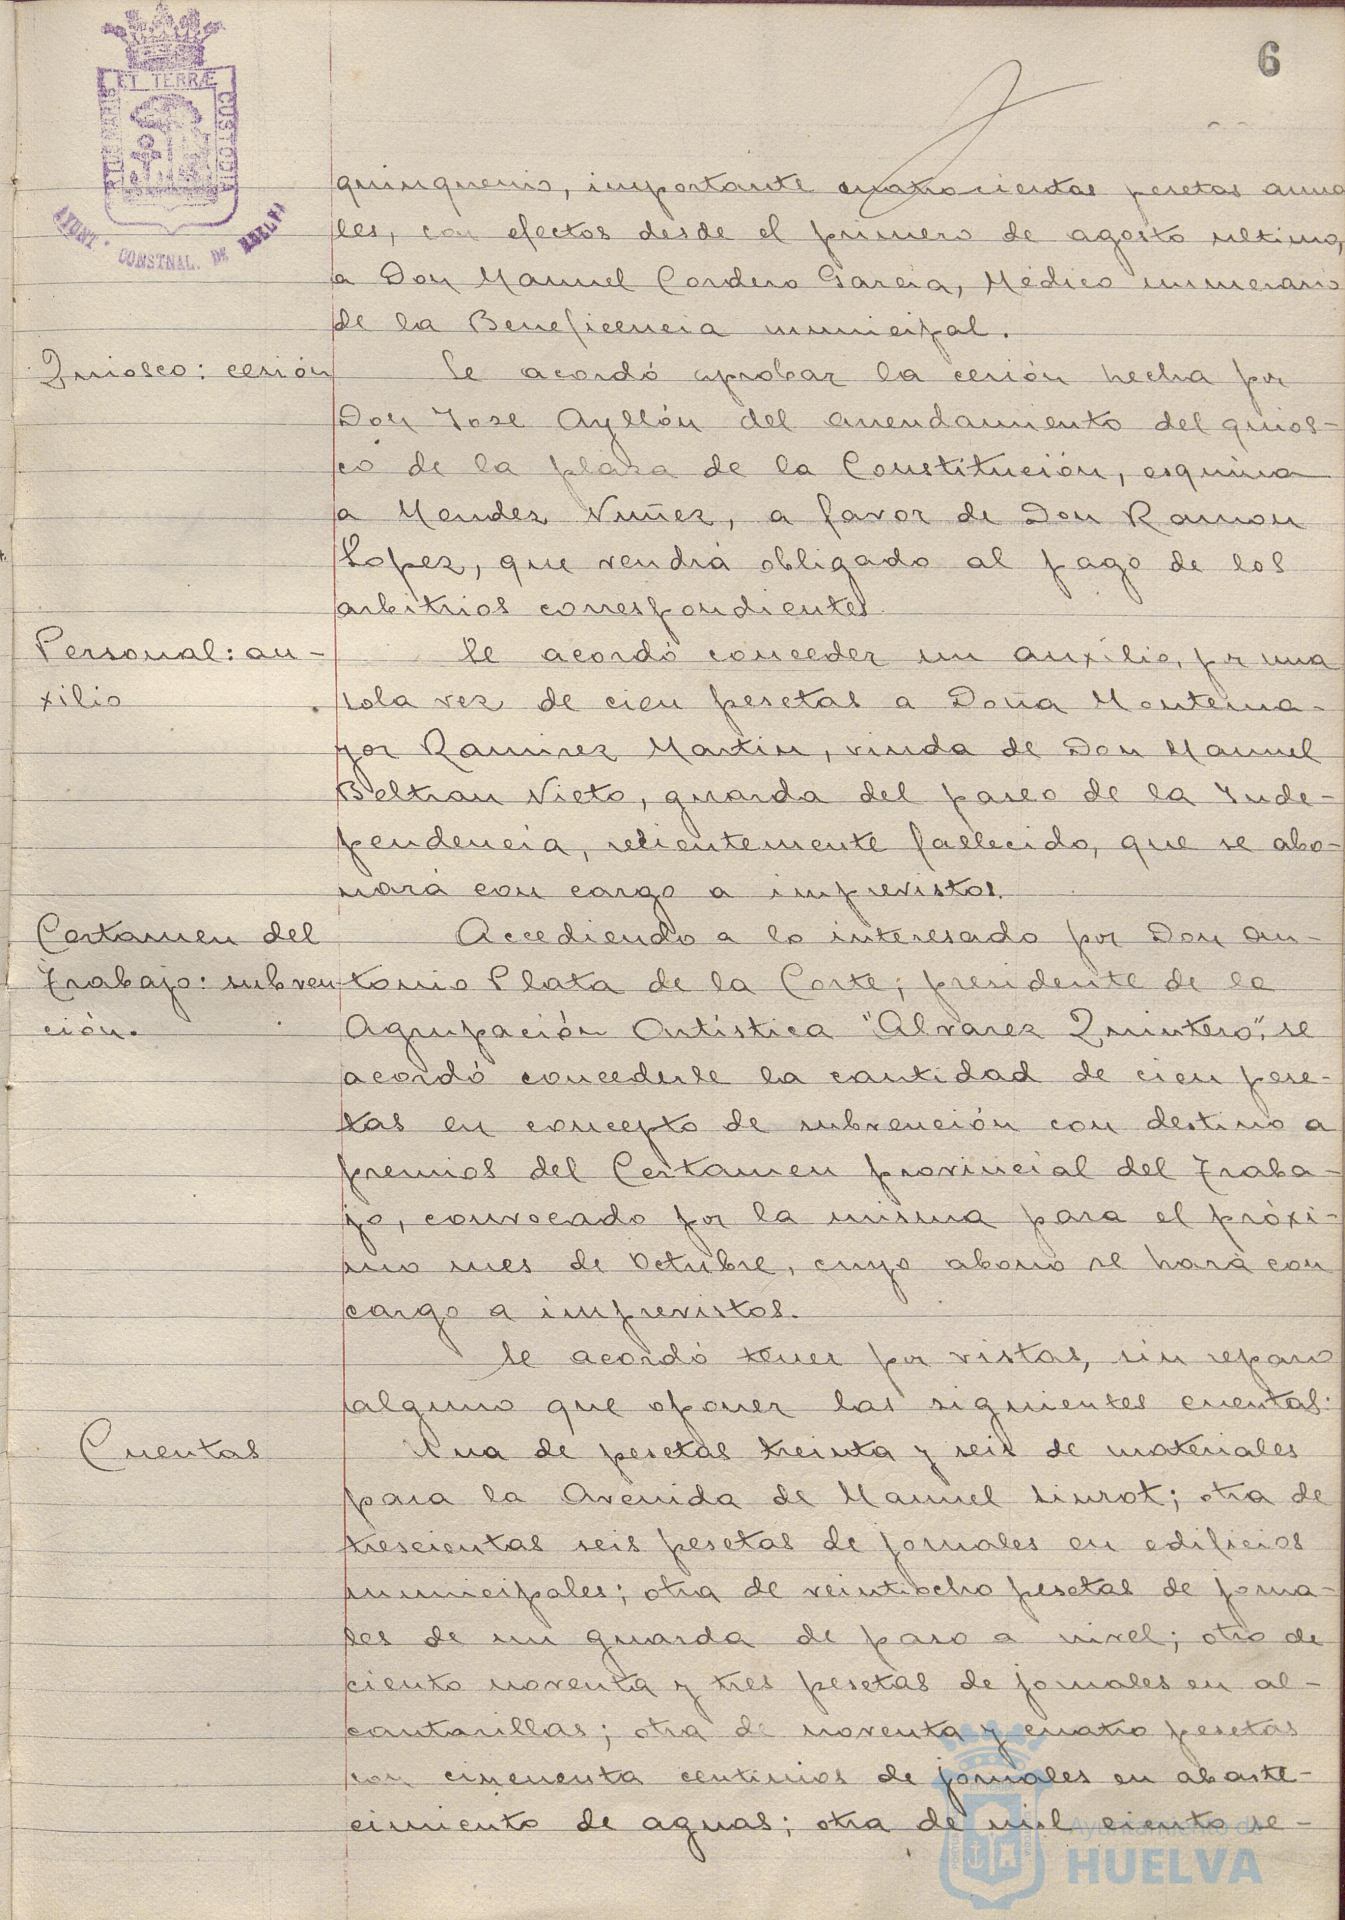 6
PORTUS MARIS ET TERRÆ CUSTODIA
AYUNT. CONSTNAL. DE HUELVA
quinquenio, importante cuatrocientas pesetas anua
les, con efectos desde el primero de agosto ultimo,
a Don Manuel Cordero Garcia, Médico numerario
de la Beneficencia municipal.
Quiosco: cesión
Se acordó aprobar la cesión hecha por
Don Jose Ayllón del arrendamiento del quios-
co de la plaza de la Constitución, esquina
a Mendez Nuñez, a favor de Don Ramon
Lopez, que vendrá obligado al pago de los
arbitrios correspondientes.
Personal: au-
xilio
Se acordó conceder un auxilio, por una
sola vez de cien pesetas a Doña Montema-
yor Ramirez Martin, viuda de Don Manuel
Beltran Nieto, guarda del paseo de la Inde-
pendencia, recientemente fallecido, que se abo-
nará con cargo a imprevistos.
Certamen del
Trabajo: subven-
ción.
Accediendo a lo interesado por Don An-
tonio Plata de la Corte, presidente de la
Agrupación Artística "Alvarez Quintero", se
acordó concederle la cantidad de cien pese-
tas en concepto de subvención con destino a
premios del Certamen provincial del Traba-
jo, convocado por la misma para el próxi-
mo mes de Octubre, cuyo abono se hará con
cargo a imprevistos.
Se acordó tener por vistas, sin reparo
alguno que oponer las siguientes cuentas:
Cuentas
Una de pesetas treinta y seis de materiales
para la Avenida de Manuel Siurot; otra de
trescientas seis pesetas de jornales en edificios
municipales; otra de veintiocho pesetas de jorna-
les de un guarda de paso a nivel; otro de
ciento noventa y tres pesetas de jornales en al-
cantarillas; otra de noventa y cuatro pesetas
con cincuenta centimos de jornales en abaste-
cimiento de aguas; otra de mil ciento se-
Ayuntamiento de
HUELVA